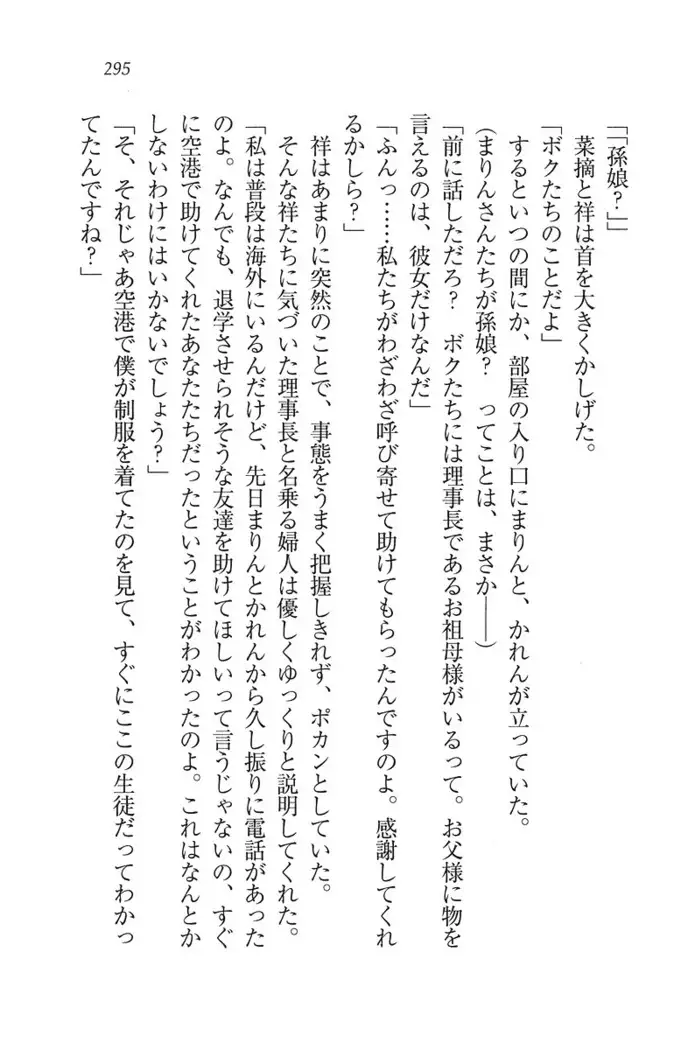 295
「「孫娘？」」
　菜摘と祥は首を大きくかしげた。
「ボクたちのことだよ」
　するといつの間にか、部屋の入り口にまりんと、かれんが立っていた。
（まりんさんたちが孫娘？　ってことは、まさか――）
「前に話しただろ？　ボクたちには理事長であるお祖母様がいるって。お父様に物を
言えるのは、彼女だけなんだ」
「ふんっ……私たちがわざわざ呼び寄せて助けてもらったんですのよ。感謝してくれ
るかしら？」
　祥はあまりに突然のことで、事態をうまく把握しきれず、ポカンとしていた。
　そんな祥たちに気づいた理事長と名乗る婦人は優しくゆっくりと説明してくれた。
「私は普段は海外にいるんだけど、先日まりんとかれんから久し振りに電話があった
のよ。なんでも、退学させられそうな友達を助けてほしいって言うじゃないの、すぐ
に空港で助けてくれたあなたたちだったということがわかったのよ。これはなんとか
しないわけにはいかないでしょう？」
「そ、それじゃあ空港で僕が制服を着てたのを見て、すぐにここの生徒だってわかっ
てたんですね？」